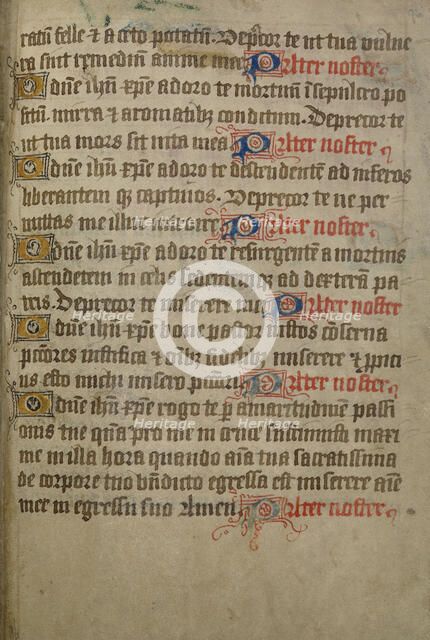 ratum felle & aceto potatum. Dep̄cor te ut tua vulne
ra sint remedium anime mee Pater noster
O dn̄e ih̄u xp̄e adoro te mortuum ī sepulcro po
situm mirra & aromatibꝫ conditum. Deprecor te
ut tua mors sit vita mea Pater noster
O dn̄e ih̄u xp̄e adoro te descendentem ad inferos
liberantem qꝫ captiuos. Deprecor te ne per
mittas me illuc Pater noster
O dn̄e ih̄u xp̄e adoro te resurgentē a mortuis
ascendētem in celos sedentemqꝫ ad dexterā pa
tris. Deprecor te miserere mei Pater noster
O dn̄e ih̄u xp̄e bone pastor iustos cōserua
pctōres iustifica & oībꝫ miserere & ꝓpici
us esto michi misero Pater noster
O dn̄e ih̄u xp̄e rogo te ꝑ amaritudinem passi
onis tue quā pro me in cruce sustinuisti maxi
me in illa hora quando aīa tua sacratissima
de corpore tuo bn̄dicto egressa est miserere aīe
mee in egressu suo Amen Pater noster
Heritage
Heritage
Heritage
Heritage
Heritage
Heritage
Heritage
©